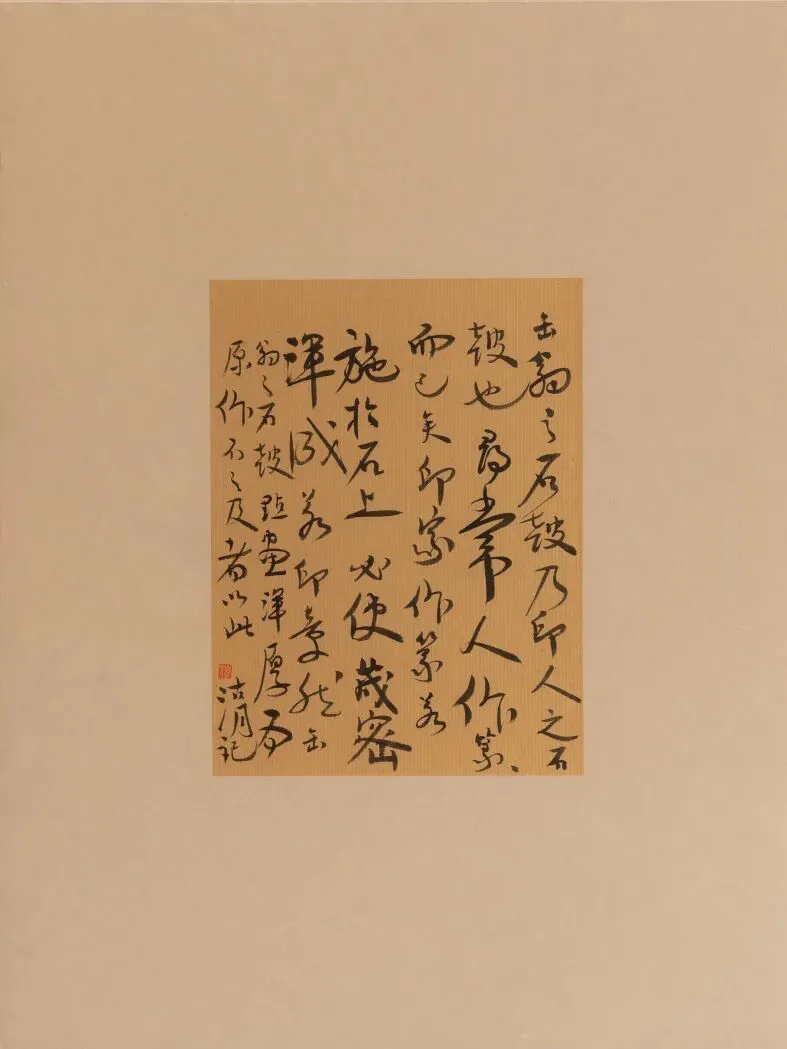 缶翁之石鼓乃印人之石
鼓也尋常人作篆、
而已矣印家作篆若
施於石上必使茂密
渾成若印章然缶
翁之石鼓點畫渾厚為
原作不之及者以此 記